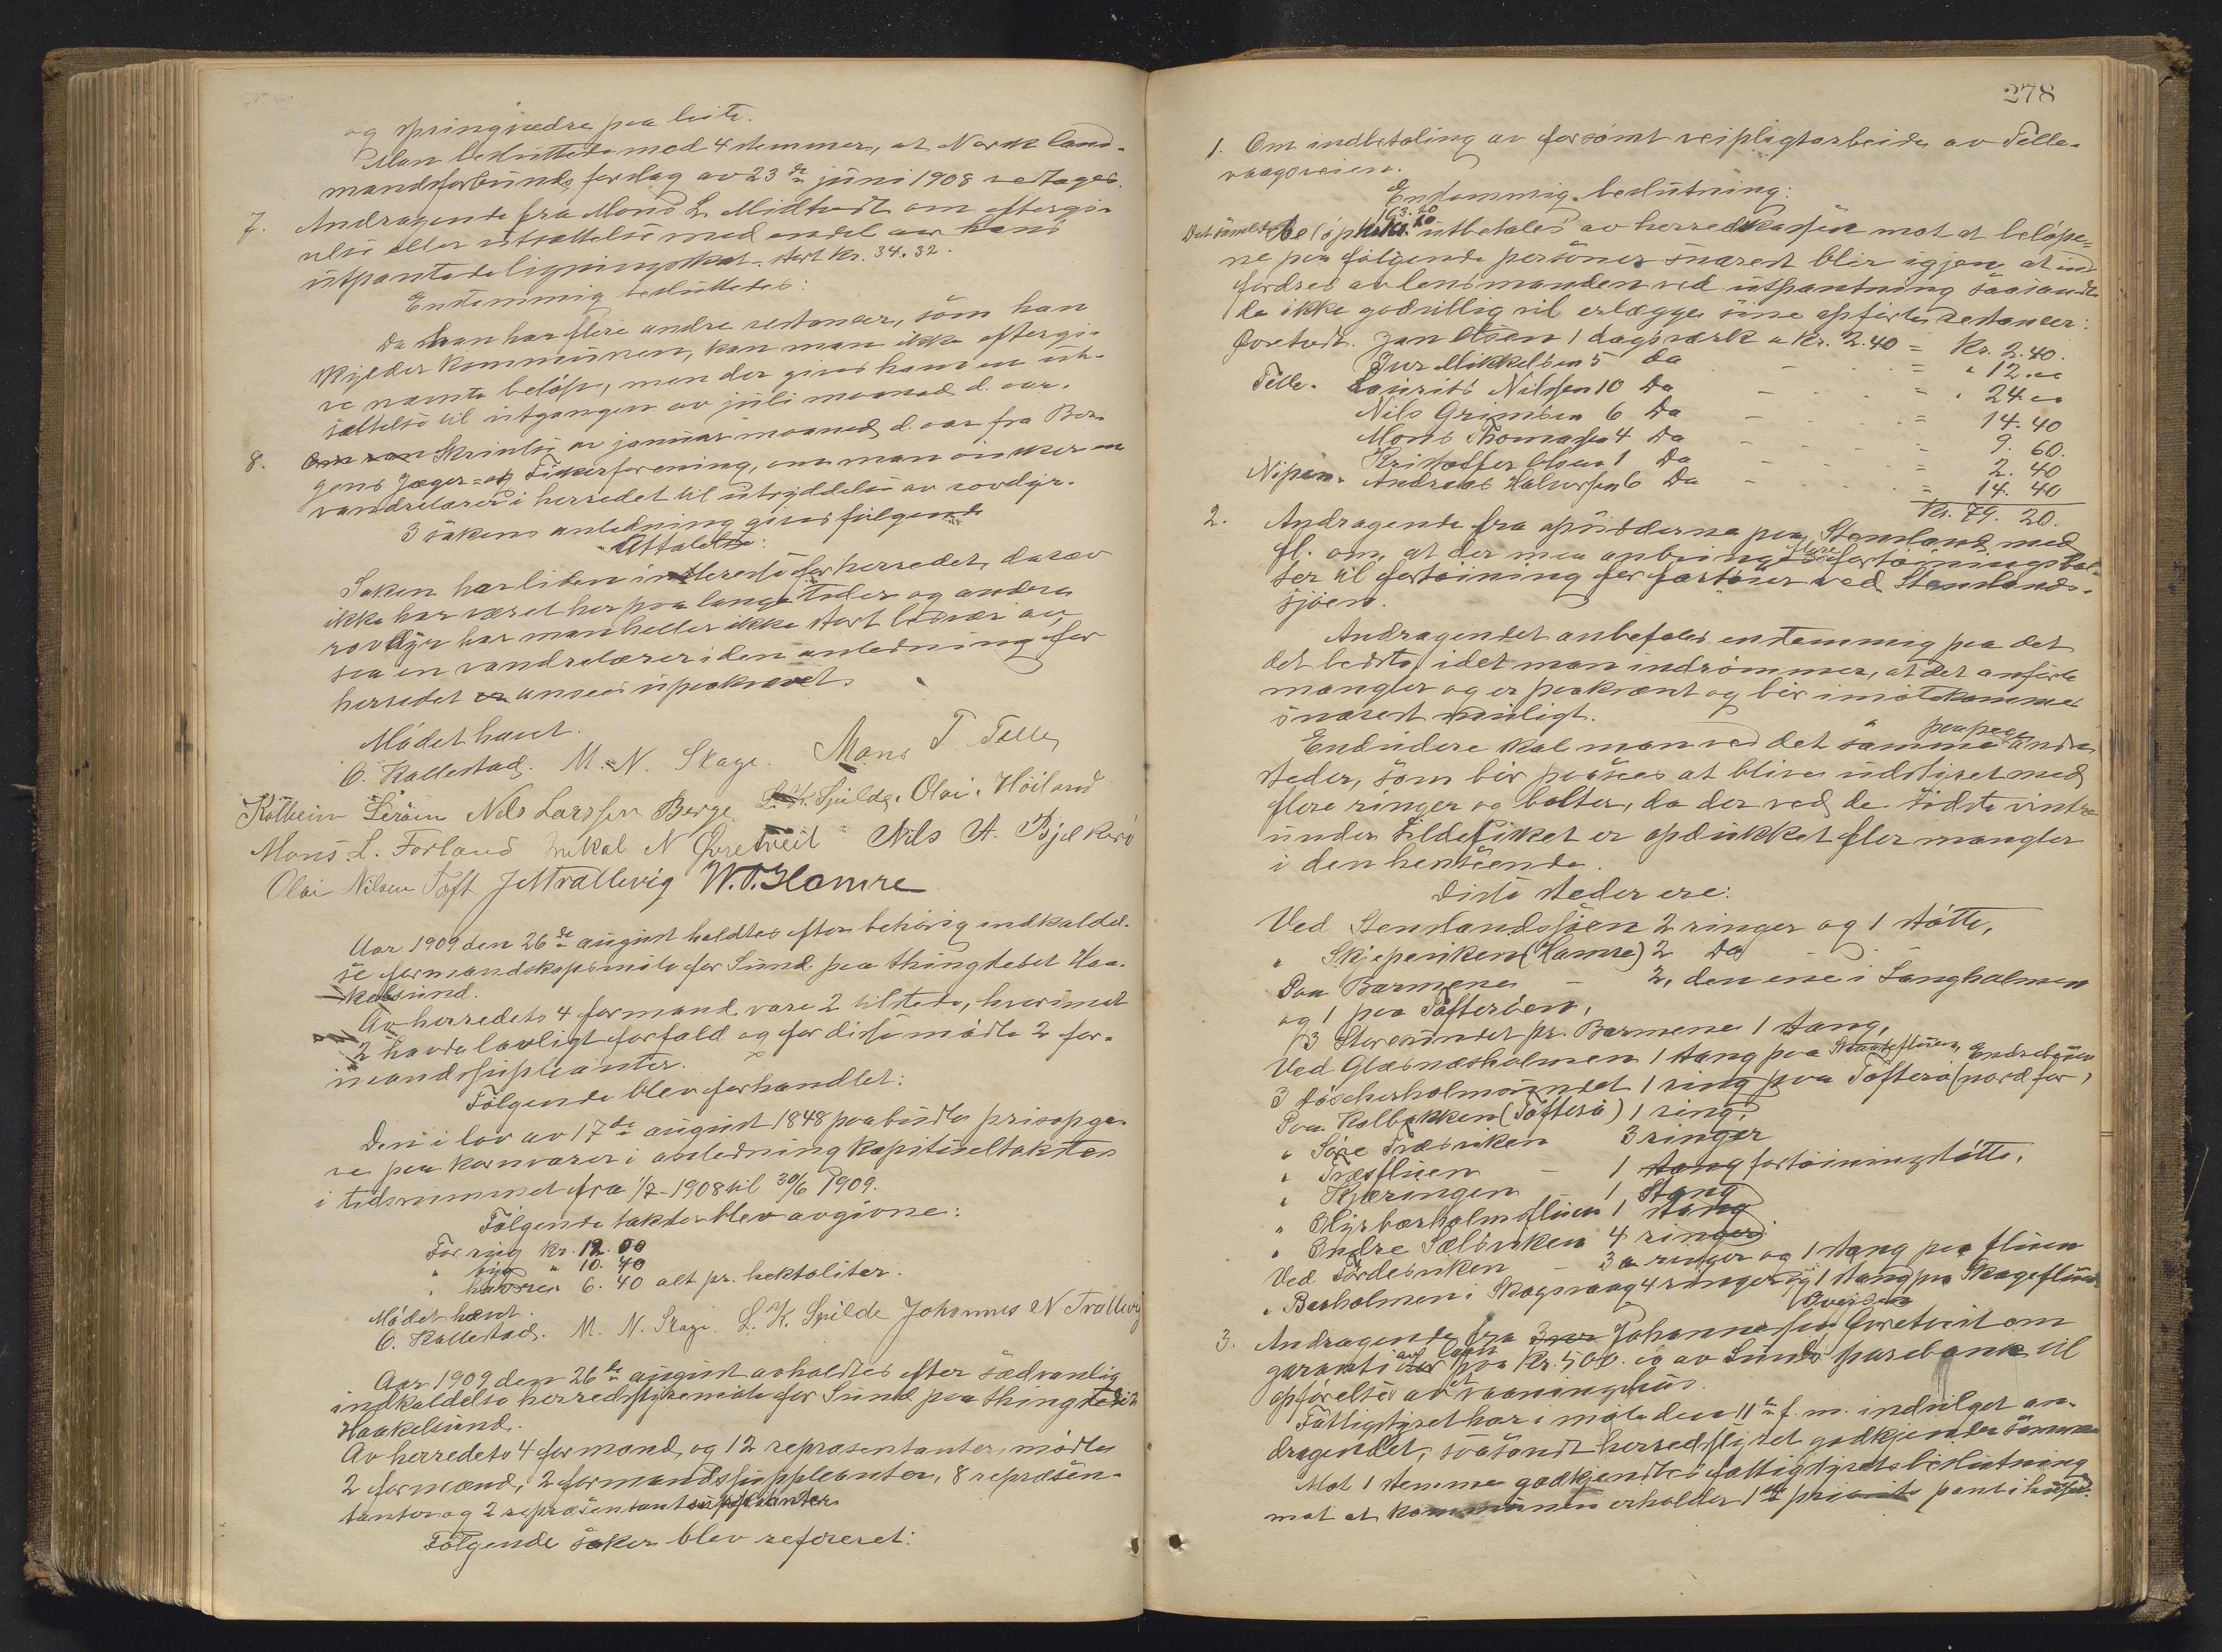 og springvædre paa beite.
Man besluttede mod 4 stemmer, at Norsk Land-
mandsforbunds forslag av 23de juni 1908 vedtages.
7. Andragende fra Mons L. Midttvedt om eftergi-
velse eller utsættelse med endel av hans
utpantede ligningsskat. stort kr. 34.32.
Enstemmig besluttedes:
Da han har flere andre restancer, som han
skylder kommunen, kan man ikke eftergi-
ve nævnte beløp, men der gives ham en ut-
sættelse til utgangen av juli maaned d. aar.
8. Skrivelse av januar maaned d. aar fra Ber-
gens Jæger- og Fiskerforening, om man ønsker en
vandrelærer i herredet til utryddelse av rovdyr.
I sakens anledning gives følgende
Uttalelse:
Saken har liten interesse for herredet, da ræv
ikke har været her paa lange tider og andre
rovdyr har man heller ikke stort besvær av,
saa en vandrelærer i den anledning for
herredet ansees upaakrævet.
Mødet hævet.
O. Kallestad. M. N. Skage. Mons T Telle
Kolbein Steinsen Nils Larssen Berge L. K. Spilde. Olai. Høiland
Mons L. Forland Mikal N Øvretveit Nils A. Bjelkarö
Olai Nilsen Toft J N Trællevig W. T. Hamre
Aar 1909 den 26de august holdtes efter behørig indkaldel-
se formandskapsmøte for Sund paa thingstedet Haa-
kelsund.
Av herredets 4 formænd vare 2 tilstede, hvorimot
2 havde lovligt forfald og for disse mødte 2 for-
mandssupleanter.
Følgende blev forhandlet:
Den i lov av 17de august 1848 paabudte prisopga-
ve paa kornvarer i anledning kapitelstakster
i tidsrummet fra 1/7-1908 til 30/6 1909.
Følgende takster blev avgivne:
For rug kr. 12.00
" byg " 10.40
" havre " 6.40 alt pr. hektoliter.
Mødet hævet.
O. Kallestad. M. N. Skage. L. K. Spilde Johannes N Trællevig
Aar 1909 den 26de august avholdtes efter sædvanlig
indkaldelse herredsstyremøte for Sund paa thingstedet
Haakelsund.
Av herredets 4 formænd og 12 repræsentanter mødte
2 formænd, 2 formandssuppleanter, 8 repræsen-
tanter og 2 repræsentantsuppleanter.
Følgende saker blev refereret:
278
1. Om indbetaling av forsømt veipligtarbeide av Telle-
vaagsveien.
Enstemmig beslutning:
163.20
Det samlede beløp kr. utbetales av herredskassen mot at beløpe-
ne paa følgende personer snarest blir igjen at ind-
fordres av lensmanden ved utpantning saasandt
de ikke godvillig vil erlægge sine opførte restancer:
Øvretvedt. Jan Olsen 1 dagsværk a Kr. 2.40 = Kr. 2.40.
Iver Mikkelsen 5 Do - = " 12.00
Telle. Laurits Nilssen 10 Do - = " 24.00
Nils Grimsen 6 Do - = 14.40
Mons Thomassen 4 Do - - 9.60.
Kristoffer Olsen 1 Do - = 2.40
Nipen. Andreas Halvorsen 6 Do - = 14.40
Kr. 79.20.
2. Andragende fra opsidderne paa Stensland med
fl. om, at der maa anbringes flere fortøiningsbol-
ter til fortøining for fartøier ved Steinslands-
sjøen.
Andragendet anbefales enstemmig paa det
det bedste, idet man indrømmer, at det anførte
mangler og er paakrævet og bør imøtekommes
snarest muligt.
Endvidere skal man ved det samme paapege andre
steder, som bør paasees at blive udstyret med
flere ringer og bolter, da der ved de sidste vintre
under sildefisket er opdukket fler mangler
i den henseende.
Disse steder ere:
Ved Stenslandssjøen 2 ringer og 1 støtte,
" Skjepeviken (Hamre) 2 Do -
Paa Barmene - 2, den ene i Langholmen
og 1 paa Tofterøen,
I Storesundet pr. Barmene 1 stang,
Ved Glæsnæsholmen 1 stang paa
I sundet 1 ring paa Tofterø (nord for)
Paa Kolbakken (Tofterø) 1 ring,
" Søre Træsviken 3 ringer
" Træsfluen - 1 stang fortøiningsstøtte,
" Kjæringen 1 Stang
" Blyvarholmsfluen 1 stang
" Indre Selsviken 4 ringer
Ved Førdesviken - 3 a ringer og 1 stang paa fluen
" Barholmen i Skogsvaag 4 ringer og 1 stang paa Skagefluen
3. Andragende fra Johannes Øvretveit om
garanti for laan paa Kr. 500.00 av Sunds sparebank til
opførelse av et vaaningshus.
Fattigstyret har i møte den 11te f. m. indvilget an-
dragendet, saasandt herredsstyret godkjender samme
Mot 1 stemme godkjendtes fattigstyrets beslutning
mot at kommunen erholder 1ste prioritets pant i huset.